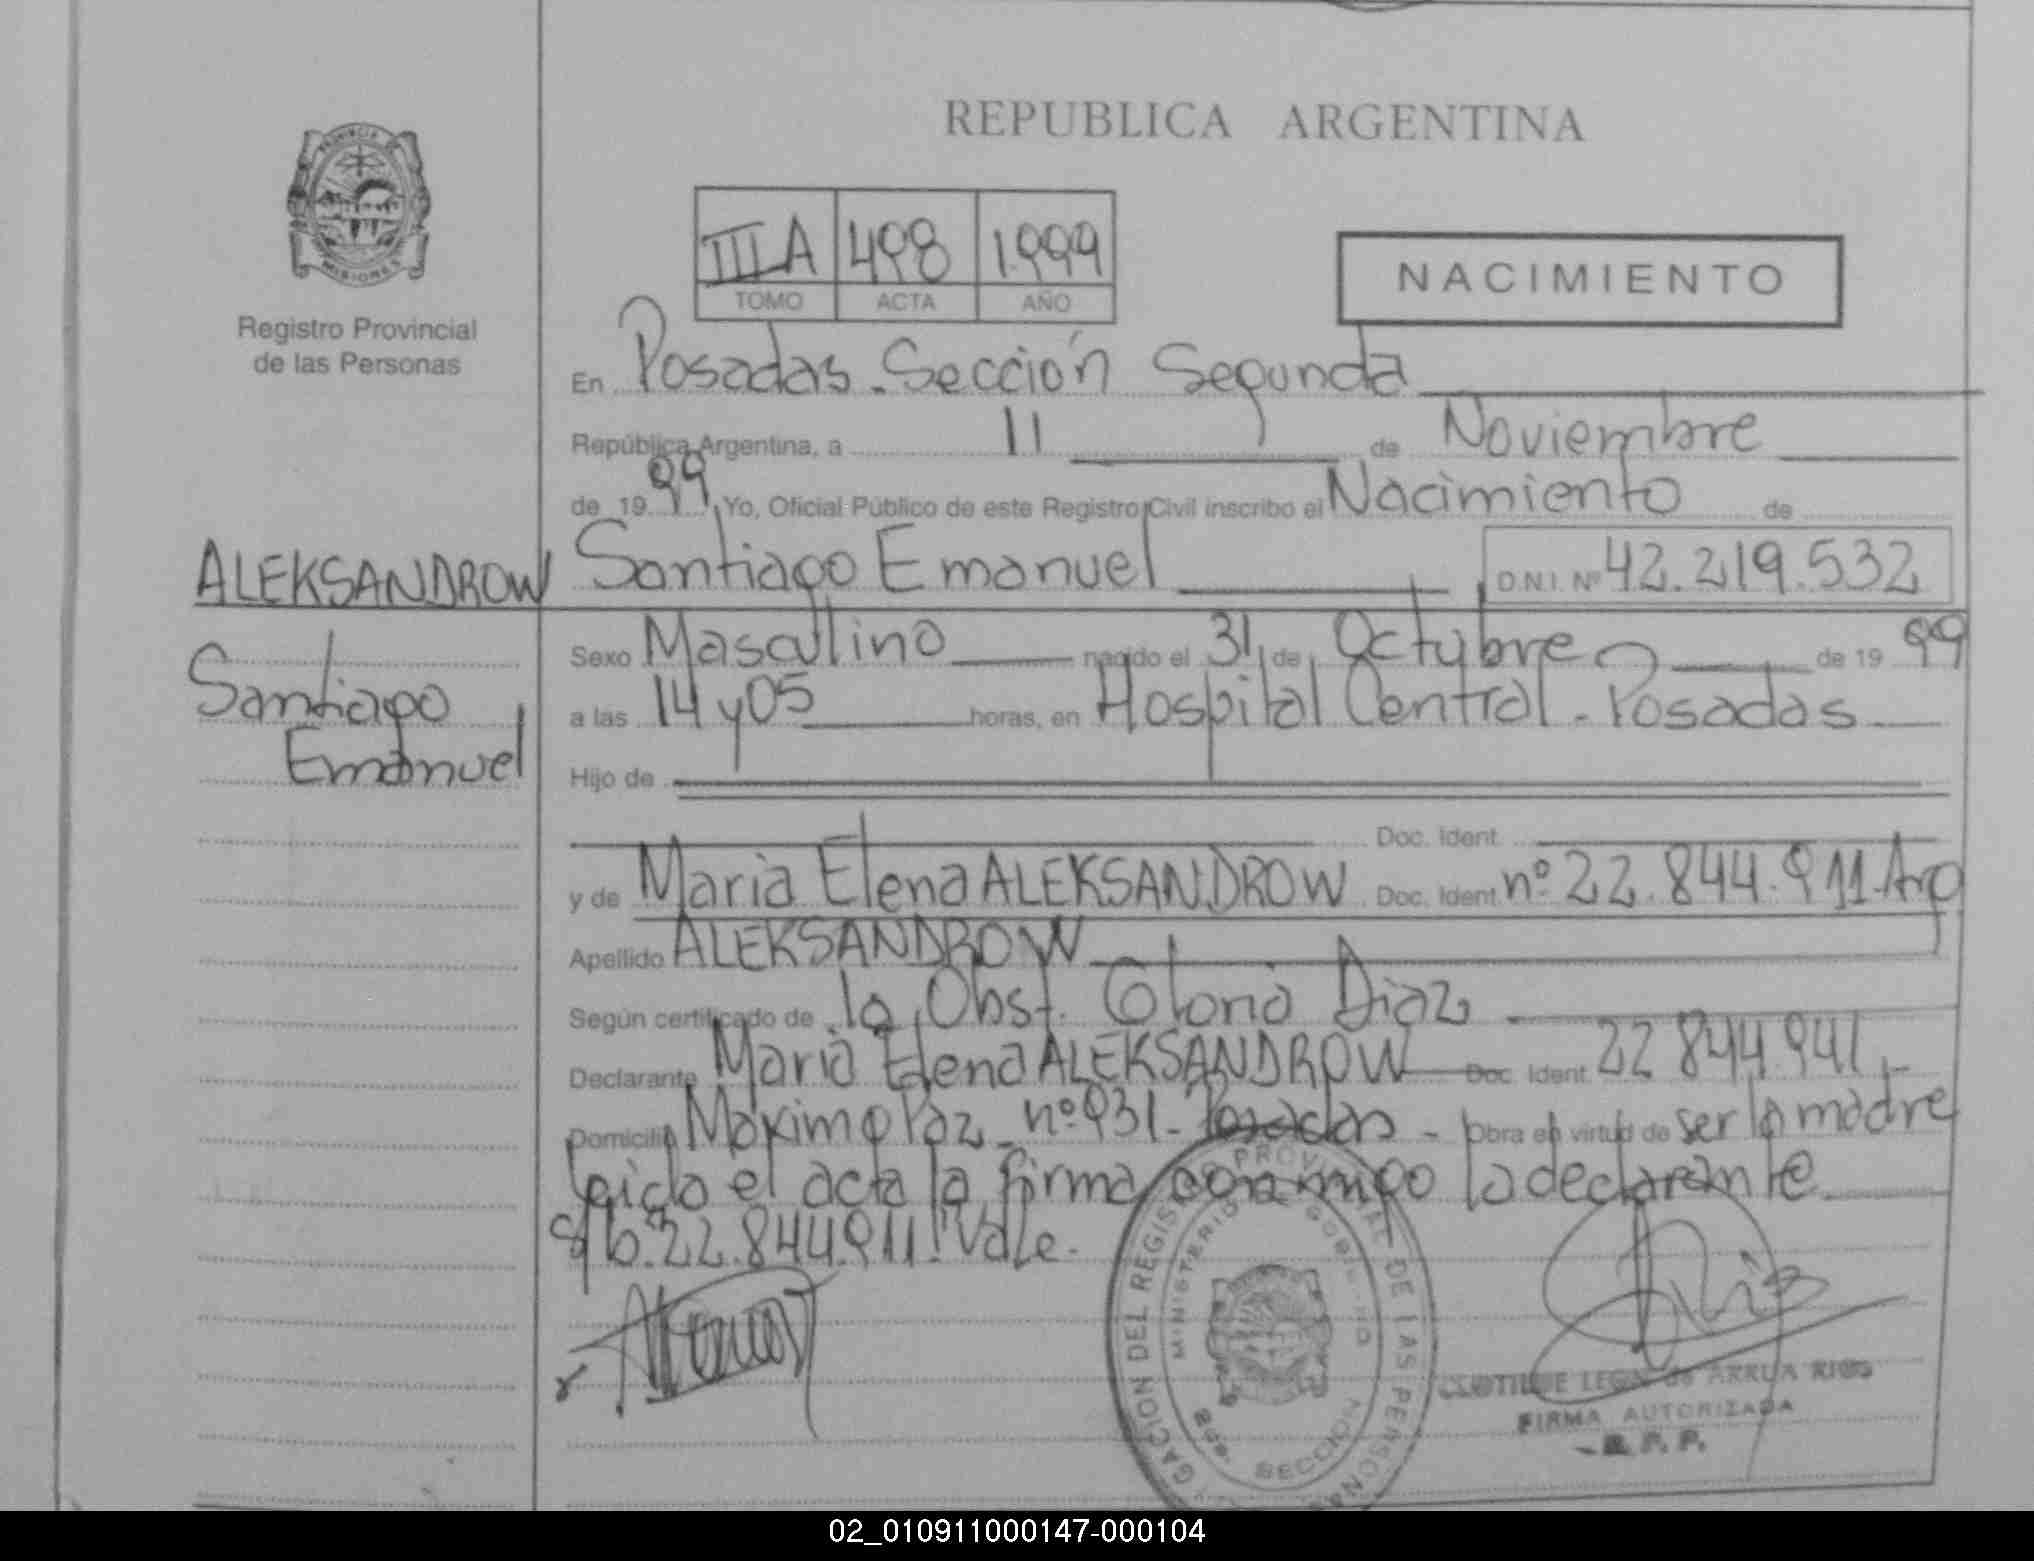 REPUBLICA ARGENTINA
PROVINCIA
MISIONES
Registro Provincial
de las Personas
III A 498 1.999
TOMO ACTA AÑO
NACIMIENTO
En Posadas. Sección Segunda
República Argentina, a 11 de Noviembre
de 19 99, Yo, Oficial Público de este Registro Civil inscribo el Nacimiento de
ALEKSANDROW Santiago Emanuel D.N.I. Nº 42.219.532
Santiago
Emanuel
Sexo Masculino nacido el 31 de Octubre de 19 99
a las 14 y 05 horas, en Hospital Central - Posadas
Hijo de
Doc. Ident.
y de Maria Elena ALEKSANDROW Doc. Ident. nº 22.844.911 Arg
Apellido ALEKSANDROW
Según certificado de la Obst. Gloria Diaz
Declarante Maria Elena ALEKSANDROW Doc. Ident. 22 844.941.-
Domicilio Maximo Paz - nº 931 - Posadas - Obra en virtud de ser la madre
leida el acta la firma conmigo la declarante
s/b.22.844.911. Vale.
GACION DEL REGISTRO PROVINCIAL DE LAS PERSONAS
MINISTERIO GOBIERNO
SECCION
CLOTILDE LEON de ARRUA RIOS
FIRMA AUTORIZADA
R. P. P.
02_010911000147-000104